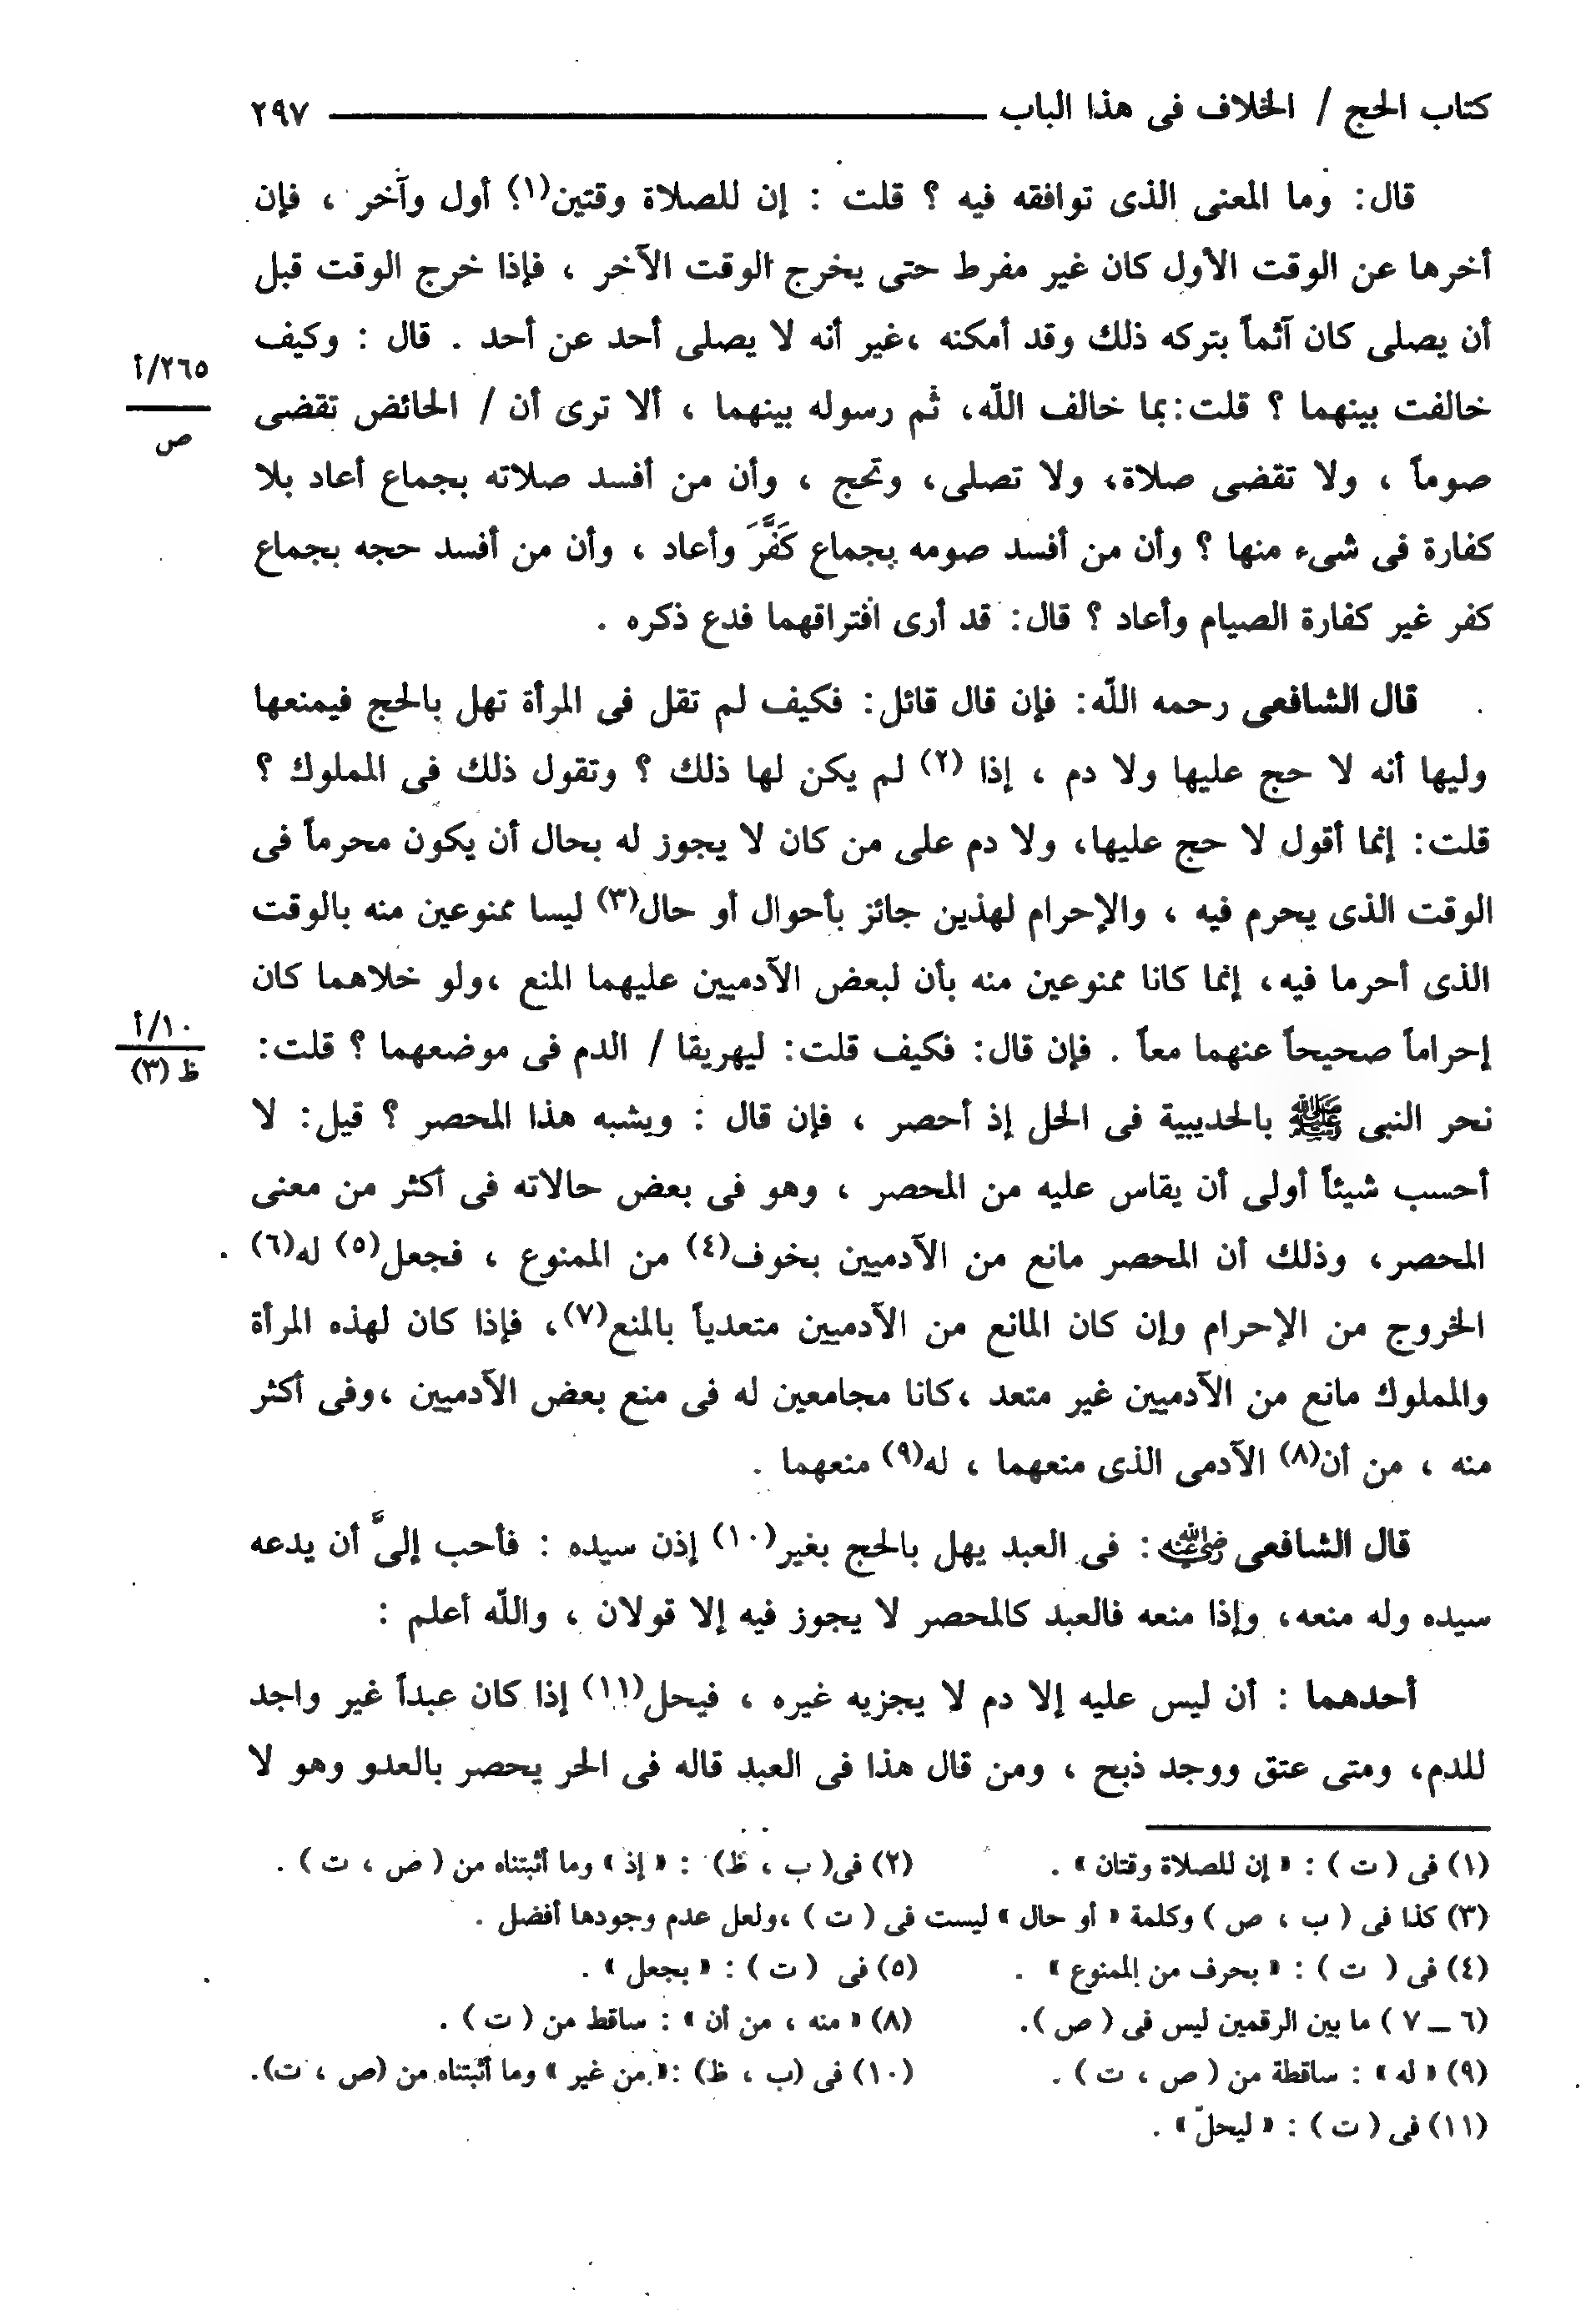 كتاب الحج / الخلاف فى هذا الباب ـــــــــ ٢٩٧
قال: وما المعنى الذى توافقه فيه ؟ قلت : إن للصلاة وقتين(١)؟ أول وآخر ، فإن
أخرها عن الوقت الأول كان غير مفرط حتى يخرج الوقت الآخر ، فإذا خرج الوقت قبل
أن يصلى كان آثماً بتركه ذلك وقد أمكنه ،غير أنه لا يصلى أحد عن أحد . قال : وكيف
٢٦٥/أ
خالفت بينهما ؟ قلت:بما خالف اللّه، ثم رسوله بينهما ، ألا ترى أن / الحائض تقضى
ص
صوماً ، ولا تقضى صلاة، ولا تصلى، وتحج ، وأن من أفسد صلاته بجماع أعاد بلا
كفارة فى شىء منها ؟ وأن من أفسد صومه بجماع كَفَّرَ وأعاد ، وأن من أفسد حجه بجماع
كفر غير كفارة الصيام وأعاد ؟ قال: قد أرى افتراقهما فدع ذكره .
قال الشافعى رحمه اللّه: فإن قال قائل: فكيف لم تقل فى المرأة تهل بالحج فيمنعها
وليها أنه لا حج عليها ولا دم ، إذا (٢) لم يكن لها ذلك ؟ وتقول ذلك فى المملوك ؟
قلت: إنما أقول لا حج عليها، ولا دم على من كان لا يجوز له بحال أن يكون محرماً فى
الوقت الذى يحرم فيه ، والإحرام لهذين جائز بأحوال أو حال(٣) ليسا ممنوعين منه بالوقت
الذى أحرما فيه، إنما كانا ممنوعين منه بأن لبعض الآدميين عليهما المنع ،ولو خلاهما كان
١٠/أ
إحراماً صحيحاً عنهما معاً . فإن قال: فكيف قلت: ليهريقا / الدم فى موضعهما ؟ قلت:
ظ (٣)
نحر النبى ﷺ بالحديبية فى الحل إذ أحصر ، فإن قال : ويشبه هذا المحصر ؟ قيل: لا
أحسب شيئاً أولى أن يقاس عليه من المحصر ، وهو فى بعض حالاته فى أكثر من معنى
المحصر، وذلك أن المحصر مانع من الآدميين بخوف(٤) من الممنوع ، فجعل(٥) له(٦)
الخروج من الإحرام وإن كان المانع من الآدميين متعدياً بالمنع(٧)، فإذا كان لهذه المرأة
والمملوك مانع من الآدميين غير متعد ،كانا مجامعين له فى منع بعض الآدميين ،وفى أكثر
منه ، من أن(٨) الآدمى الذى منعهما ، له(٩) منعهما .
قال الشافعى رضي الله عنه : فى العبد يهل بالحج بغير(١٠) إذن سيده : فأحب إلىَّ أن يدعه
سيده وله منعه، وإذا منعه فالعبد كالمحصر لا يجوز فيه إلا قولان ، واللّه أعلم :
أحدهما : أن ليس عليه إلا دم لا يجزيه غيره ، فيحل(١١) إذا كان عبداً غير واجد
للدم، ومتى عتق ووجد ذبح ، ومن قال هذا فى العبد قاله فى الحر يحصر بالعدو وهو لا
(١) فى ( ت ) : « إن للصلاة وقتان » . (٢) فى( ب ، ظ) : « إذ » وما أثبتناه من ( ص ، ت ) .
(٣) كذا فى ( ب ، ص ) وكلمة « أو حال » ليست فى ( ت ) ،ولعل عدم وجودها أفضل .
(٤) فى ( ت ) : « بحرف من الممنوع » . (٥) فى ( ت ) : « بجعل » .
(٦ ــ ٧ ) ما بين الرقمين ليس فى ( ص ). (٨) « منه ، من أن » : ساقط من ( ت ) .
(٩) « له » : ساقطة من ( ص ، ت ) . (١٠) فى (ب ، ظ) :« من غير » وما أثبتناه من (ص ، ت).
(١١) فى ( ت ) : « ليحلّ » .